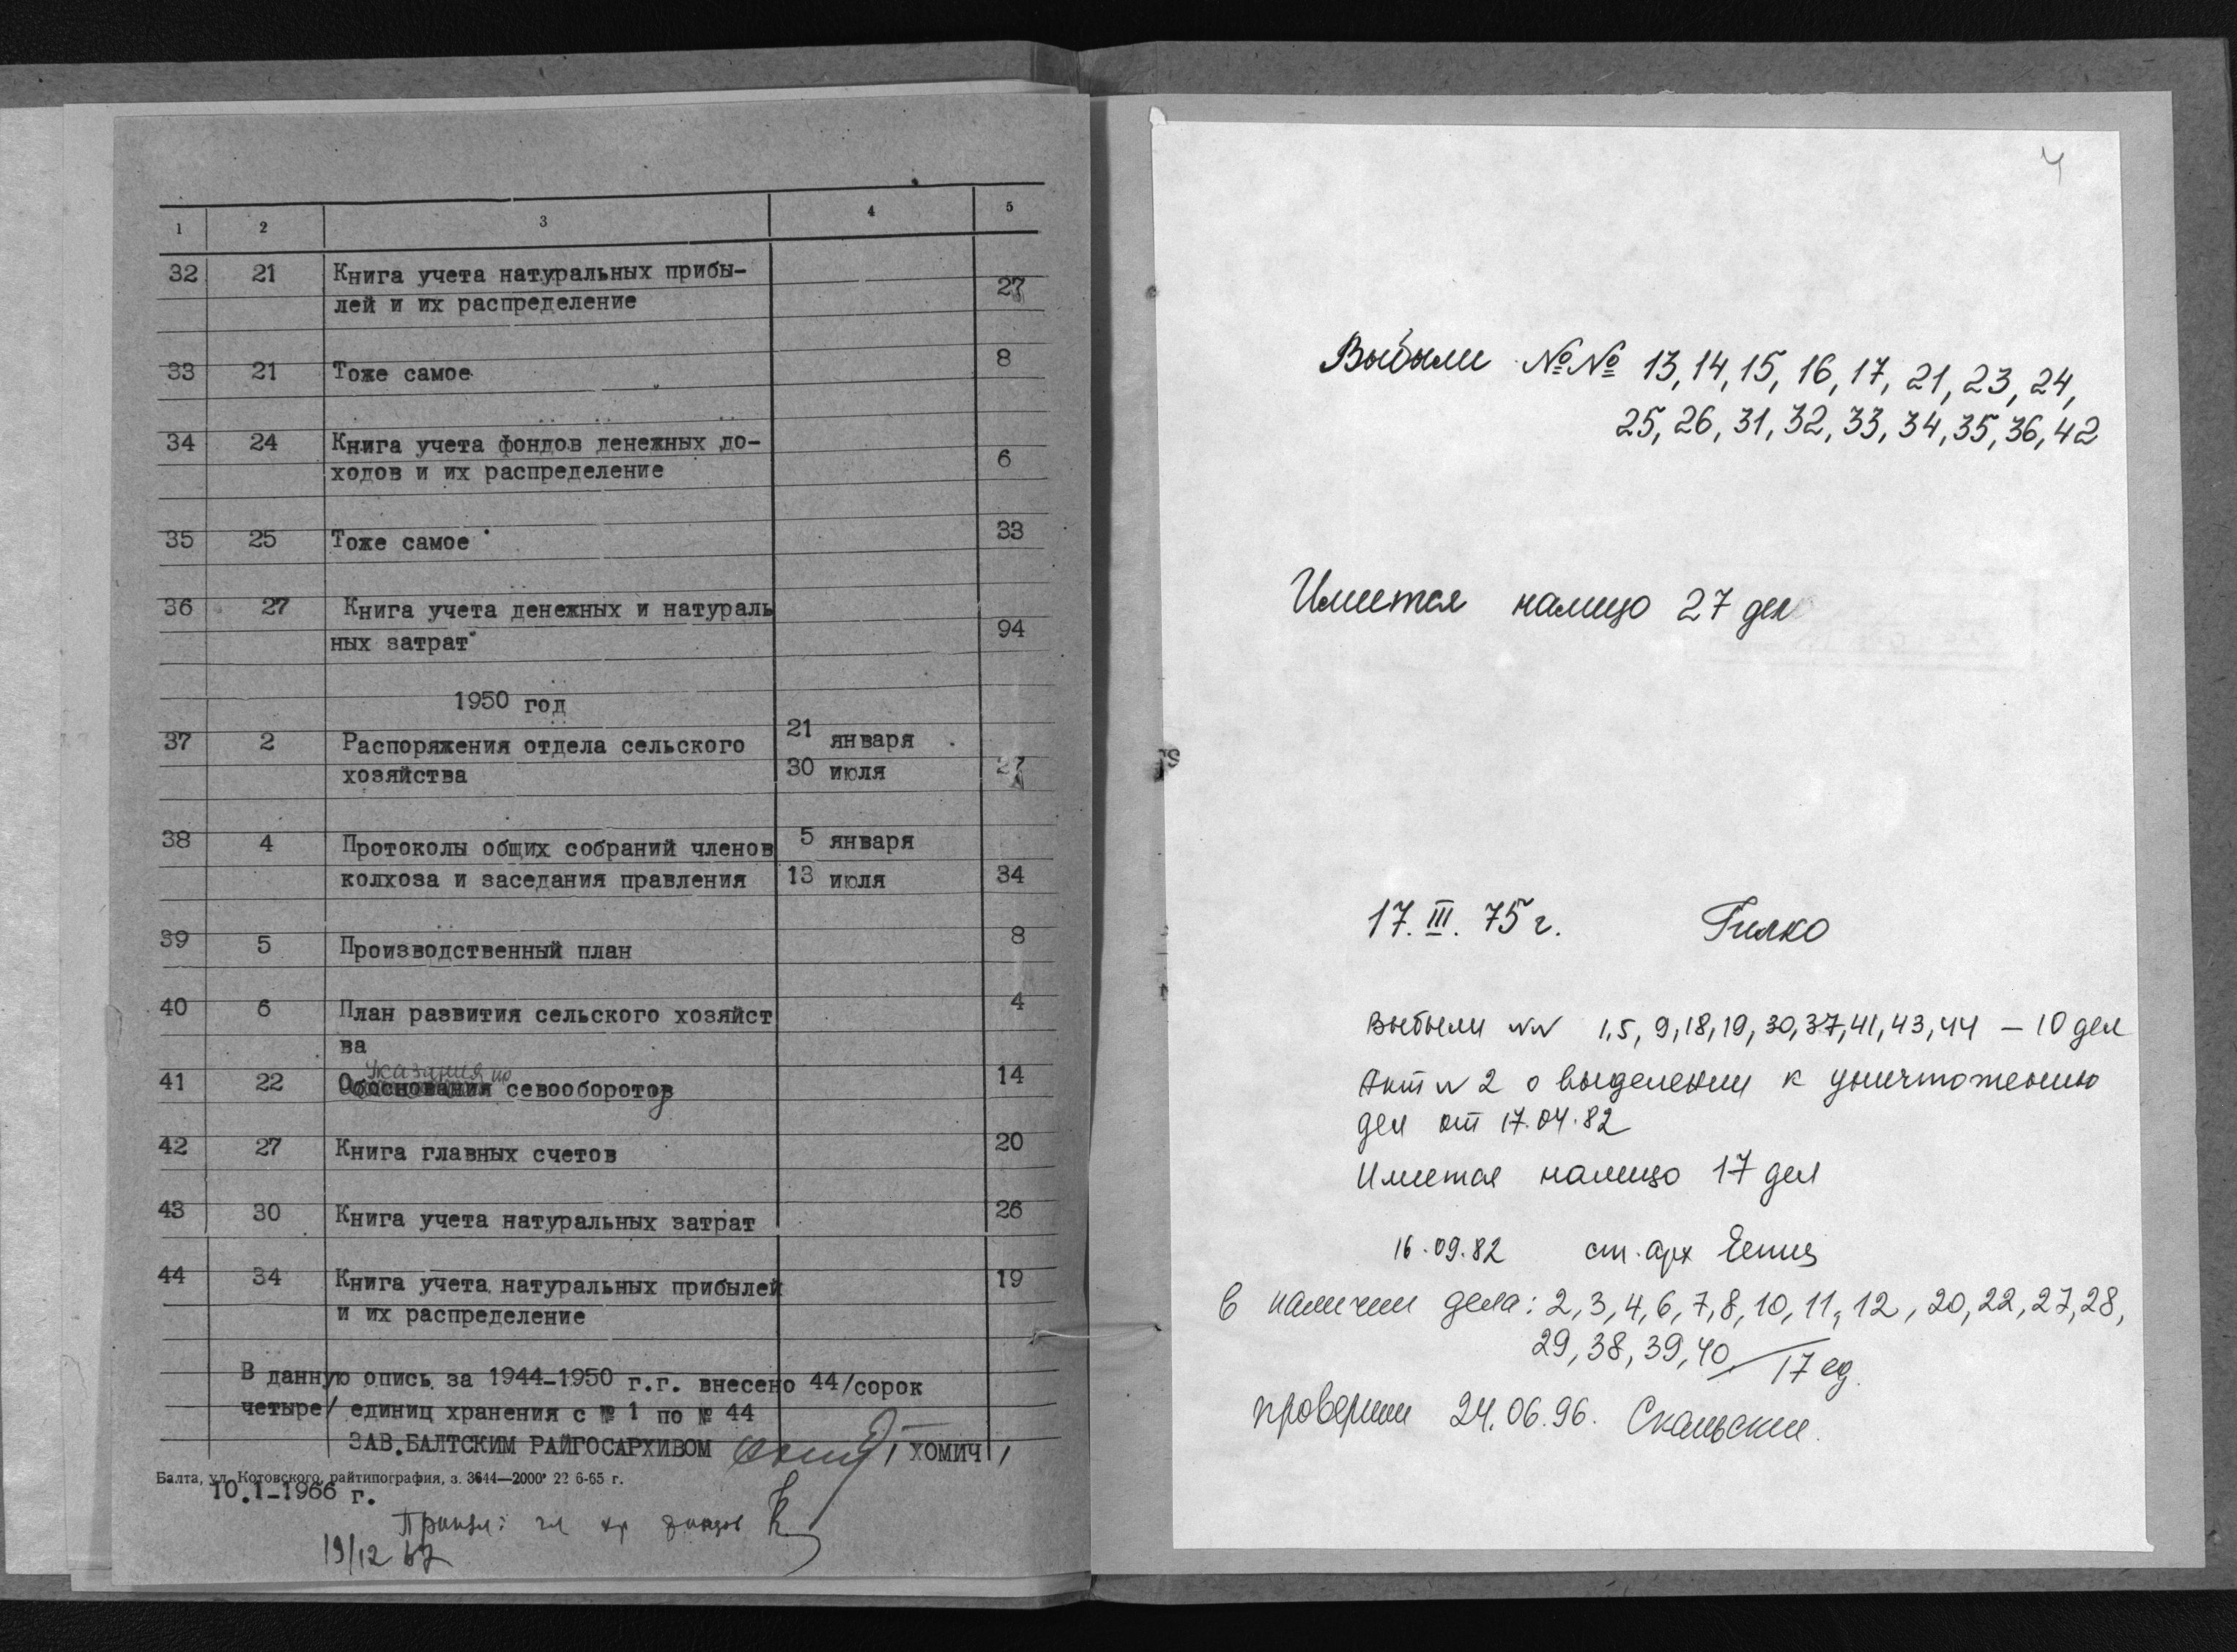 1 2 3 4 5
32 21 Книга учета натуральных прибы-
лей и их распределение 27
33 21 Тоже самое 8
34 24 Книга учета фондов денежных до-
ходов и их распределение 6
35 25 Тоже самое 33
36 27 Книга учета денежных и натураль
ных затрат 94
1950 год
37 2 Распоряжения отдела сельского 21 января
хозяйства 30 июля 27
38 4 Протоколы общих собраний членов 5 января
колхоза и заседания правления 13 июля 34
39 5 Производственный план 8
40 6 План развития сельского хозяйст 4
ва
Указания по
41 22 Обоснования севооборотов 14
42 27 Книга главных счетов 20
43 30 Книга учета натуральных затрат 26
44 34 Книга учета натуральных прибылей 19
и их распределение
В данную опись за 1944-1950 г.г. внесено 44/сорок
четыре/ единиц хранения с № 1 по № 44
ЗАВ.БАЛТСКИМ РАЙГОСАРХИВОМ / ХОМИЧ /
Балта, ул. Котовского, райтипография, з. 3644—2000 22 6-65 г.
10.1-1966 г.
19/12 67
4
Выбыли №№ 13, 14, 15, 16, 17, 21, 23, 24,
25, 26, 31, 32, 33, 34, 35, 36, 42
Имеется налицо 27 дел
17. III. 75 г. Гилко
Выбыли NN 1, 5, 9, 18, 19, 30, 37, 41, 43, 44 — 10 дел
Акт N 2 о выделении к уничтожению
дел от 17.04.82
Имеется налицо 17 дел
16.09.82 ст. арх
В наличии дела: 2, 3, 4, 6, 7, 8, 10, 11, 12, 20, 22, 27, 28,
29, 38, 39, 40 17 ед.
проверили 24.06.96. Скальский.